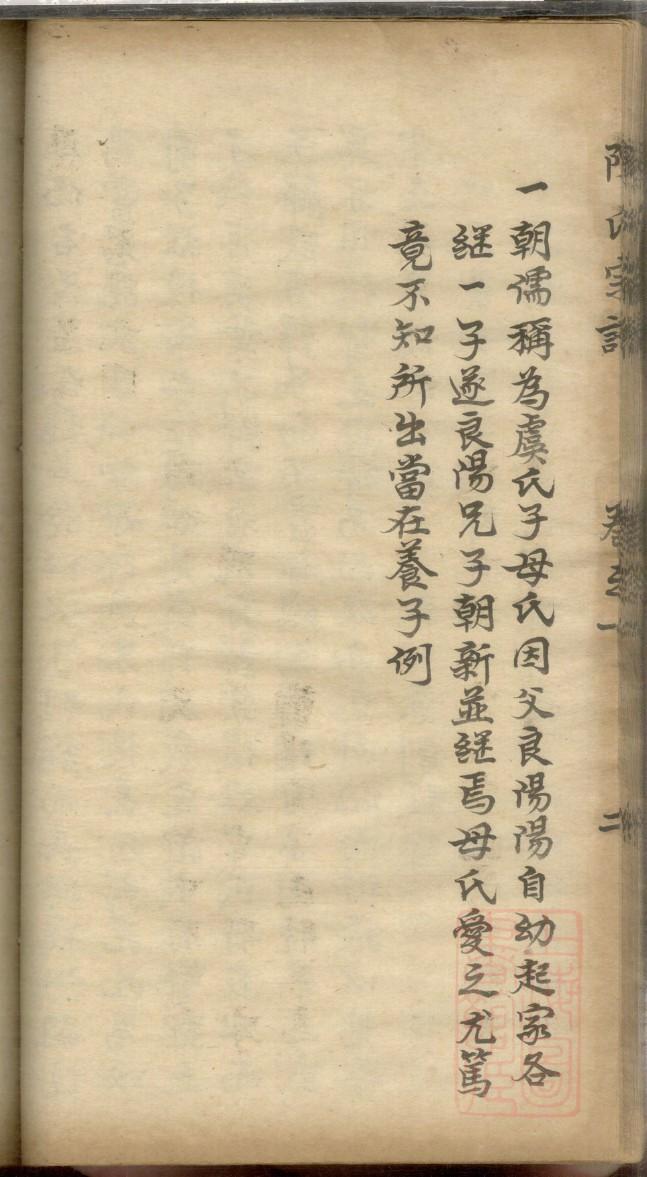 一朝儒稱為虞氏子母氏因父良陽陽自幼起家各
継一子遂良陽兄子朝新並継焉母氏愛之尤篤
竟不知所出當在養子例